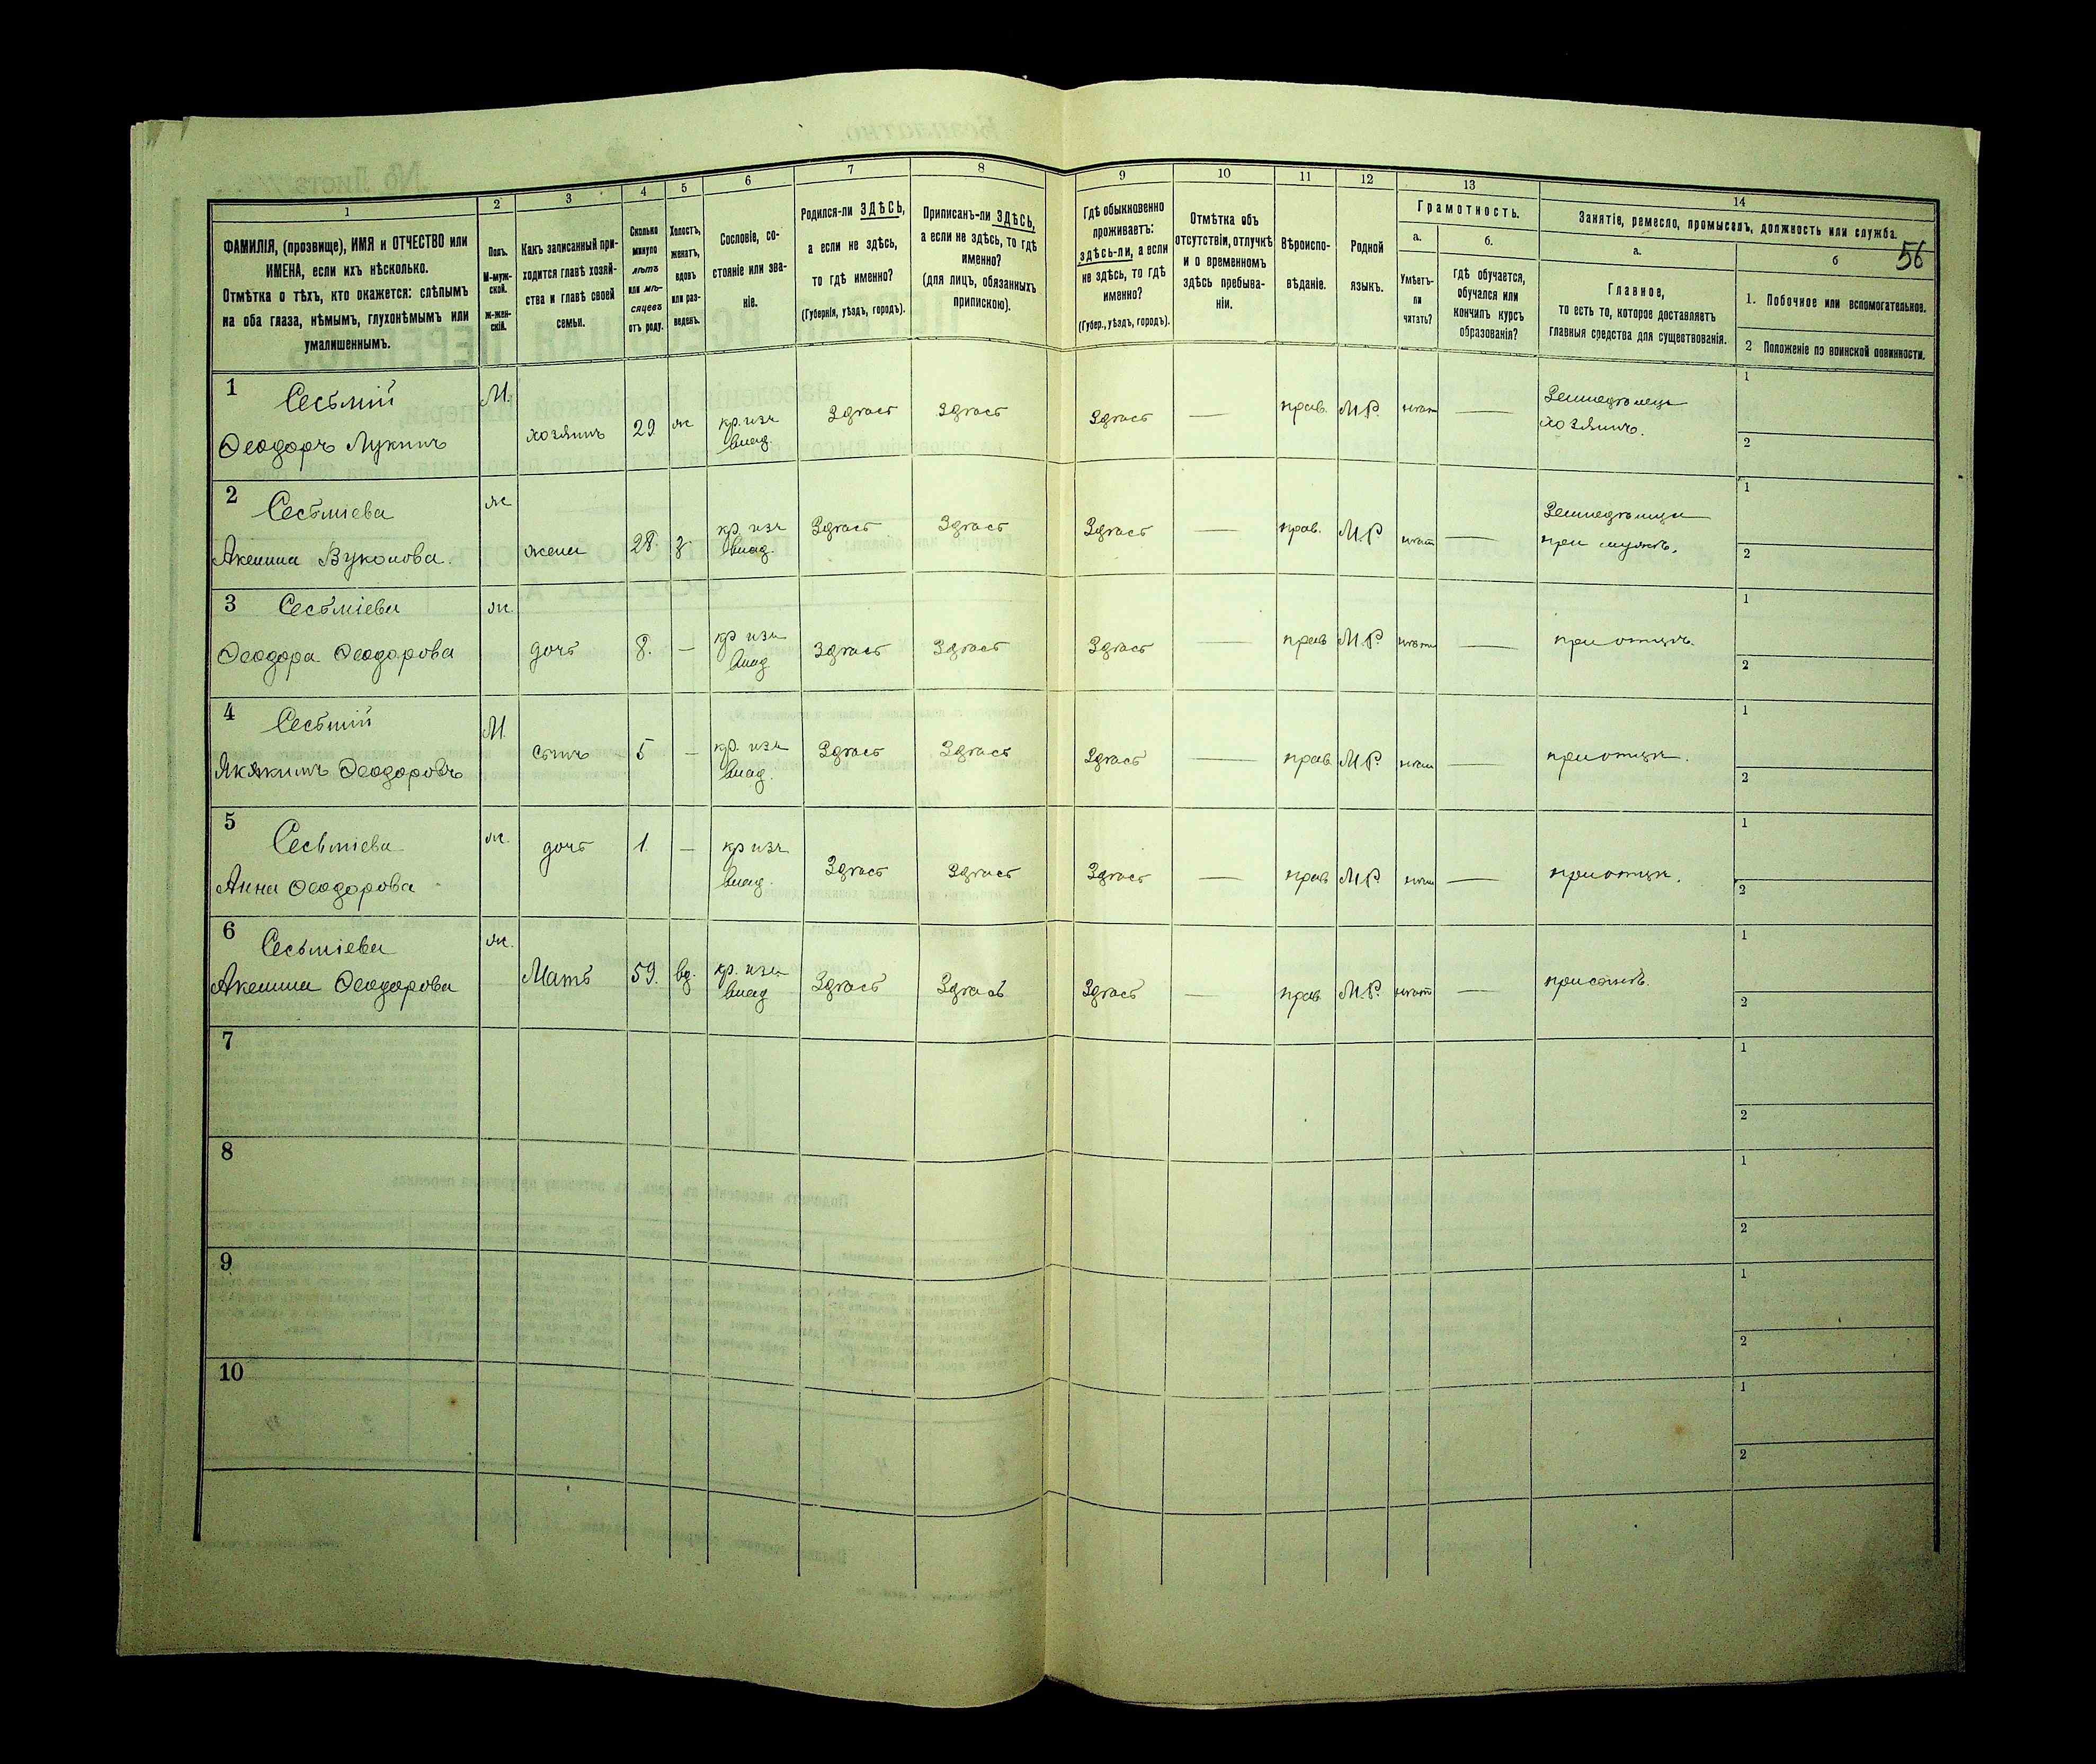 56
1 2 3 4 5 6 7 8 9 10 11 12 13 14
ФАМИЛІЯ, (прозвище), ИМЯ и ОТЧЕСТВО или
ИМЕНА, если ихъ нѣсколько.
Отмѣтка о тѣхъ, кто окажется: слѣпымъ
на оба глаза, нѣмымъ, глухонѣмымъ или
умалишеннымъ.
Полъ.
М-муж-
ской.
ж-жен-
скій.
Какъ записанный при-
ходится главѣ хозяй-
ства и главѣ своей
семьи.
Сколько
минуло
лѣтъ
или мѣ-
сяцевъ
отъ роду.
Холостъ,
женатъ,
вдовъ
или раз-
веденъ.
Сословіе, со-
стояніе или зва-
ніе.
Родился-ли ЗДѢСЬ,
а если не здѣсь,
то гдѣ именно?
(Губернія, уѣздъ, городъ).
Приписанъ-ли ЗДѢСЬ,
а если не здѣсь, то гдѣ
именно?
(для лицъ, обязанныхъ
припискою).
Гдѣ обыкновенно
проживаетъ:
здѣсь-ли, а если
не здѣсь, то гдѣ
именно?
(Губер., уѣздъ, городъ).
Отмѣтка объ
отсутствіи, отлучкѣ
и о временномъ
здѣсь пребыва-
ніи.
Вѣроиспо-
вѣданіе.
Родной
языкъ.
Грамотность.
а.
Умѣетъ-
ли
читать?
б.
гдѣ обучается,
обучался или
кончилъ курсъ
образованія?
Занятіе, ремесло, промыселъ, должность или служба.
а.
Главное,
то есть то, которое доставляетъ
главныя средства для существованія.
б
1. Побочное или вспомогательное.
2 Положеніе по воинской повинности.
1 Сесьмій М.
Ѳеодоръ Лукинъ хозяинъ 29 ж кр. изъ влад. Здѣсь Здѣсь Здѣсь — прав. М.Р. нѣт — Земледѣлецъ хозяинъ. 1 2
2 Сесьміева ж
Акелина Вуколова. жена 28. з. кр. изъ влад. Здѣсь Здѣсь Здѣсь — прав. М.Р. нѣт — при мужѣ. 1 2
3 Сесьміева ж.
Ѳеодора Ѳеодорова дочь 8. — кр изъ влад Здѣсь Здѣсь Здѣсь — прав М.Р. нѣт — при отцѣ. 1 2
4 Сесьмій М.
Ѳеодоровъ сынъ 5 — кр. изъ влад. Здѣсь Здѣсь Здѣсь — прав М.Р. нѣт — при отцѣ. 1 2
5 Сесьміева ж.
Анна Ѳеодорова дочь 1. — кр изъ влад. Здѣсь Здѣсь Здѣсь — прав М.Р. нѣт — при отцѣ. 1 2
6 Сесьміева ж.
Акелина Ѳеодорова Мать 59. вд. кр. изъ влад Здѣсь Здѣсь Здѣсь — прав М.Р. нѣт — при сынѣ. 1 2
7 1 2
8 1 2
9 1 2
10 1 2